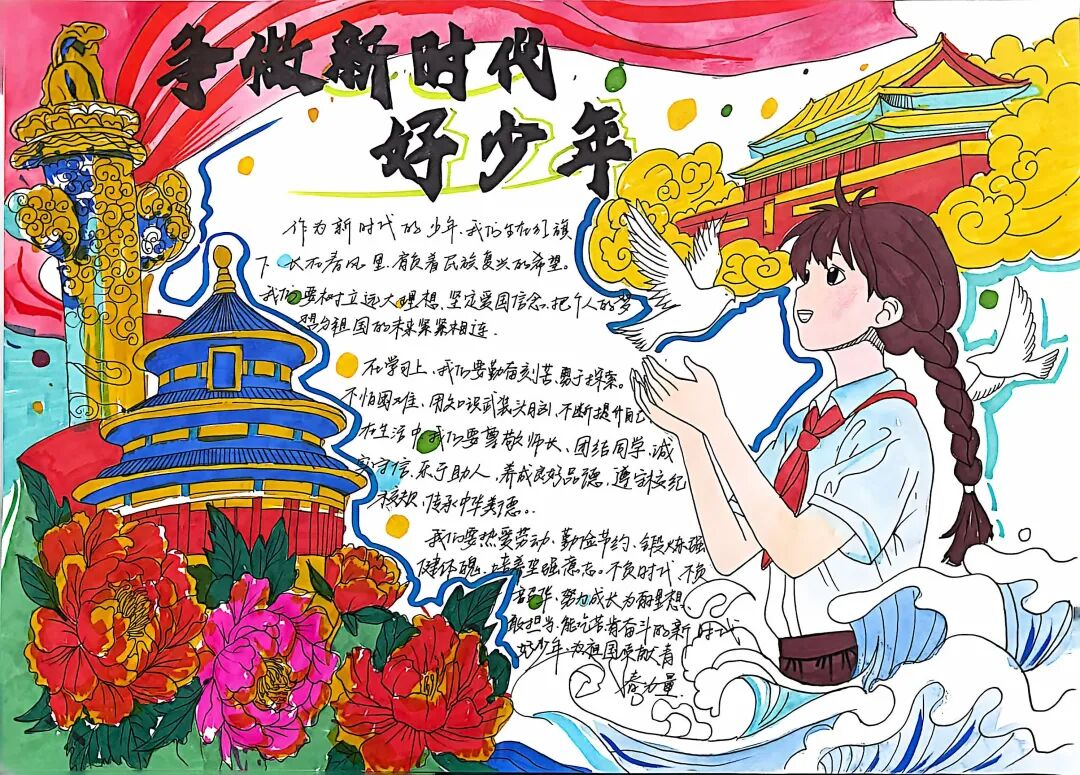 争做新时代
好少年
作为新时代的少年，我们生在红旗
下，长在春风里，肩负着民族复兴的希望。
我们要树立远大理想、坚定爱国信念，把个人的梦
想与祖国的未来紧紧相连.
在学习上，我们要勤奋刻苦、勇于探索。
不怕困难、用知识武装头脑，不断提升自己
在生活中，我们要尊敬师长、团结同学、诚
实守信、乐于助人，养成良好品德，遵守校纪
校规，传承中华美德。
我们要热爱劳动、勤俭节约、锻炼强
健体魄、培养坚强意志。不负时代，不负
韶华，努力成长为有理想、
敢担当、能吃苦、肯奋斗的新时代
好少年，为祖国贡献青
春力量